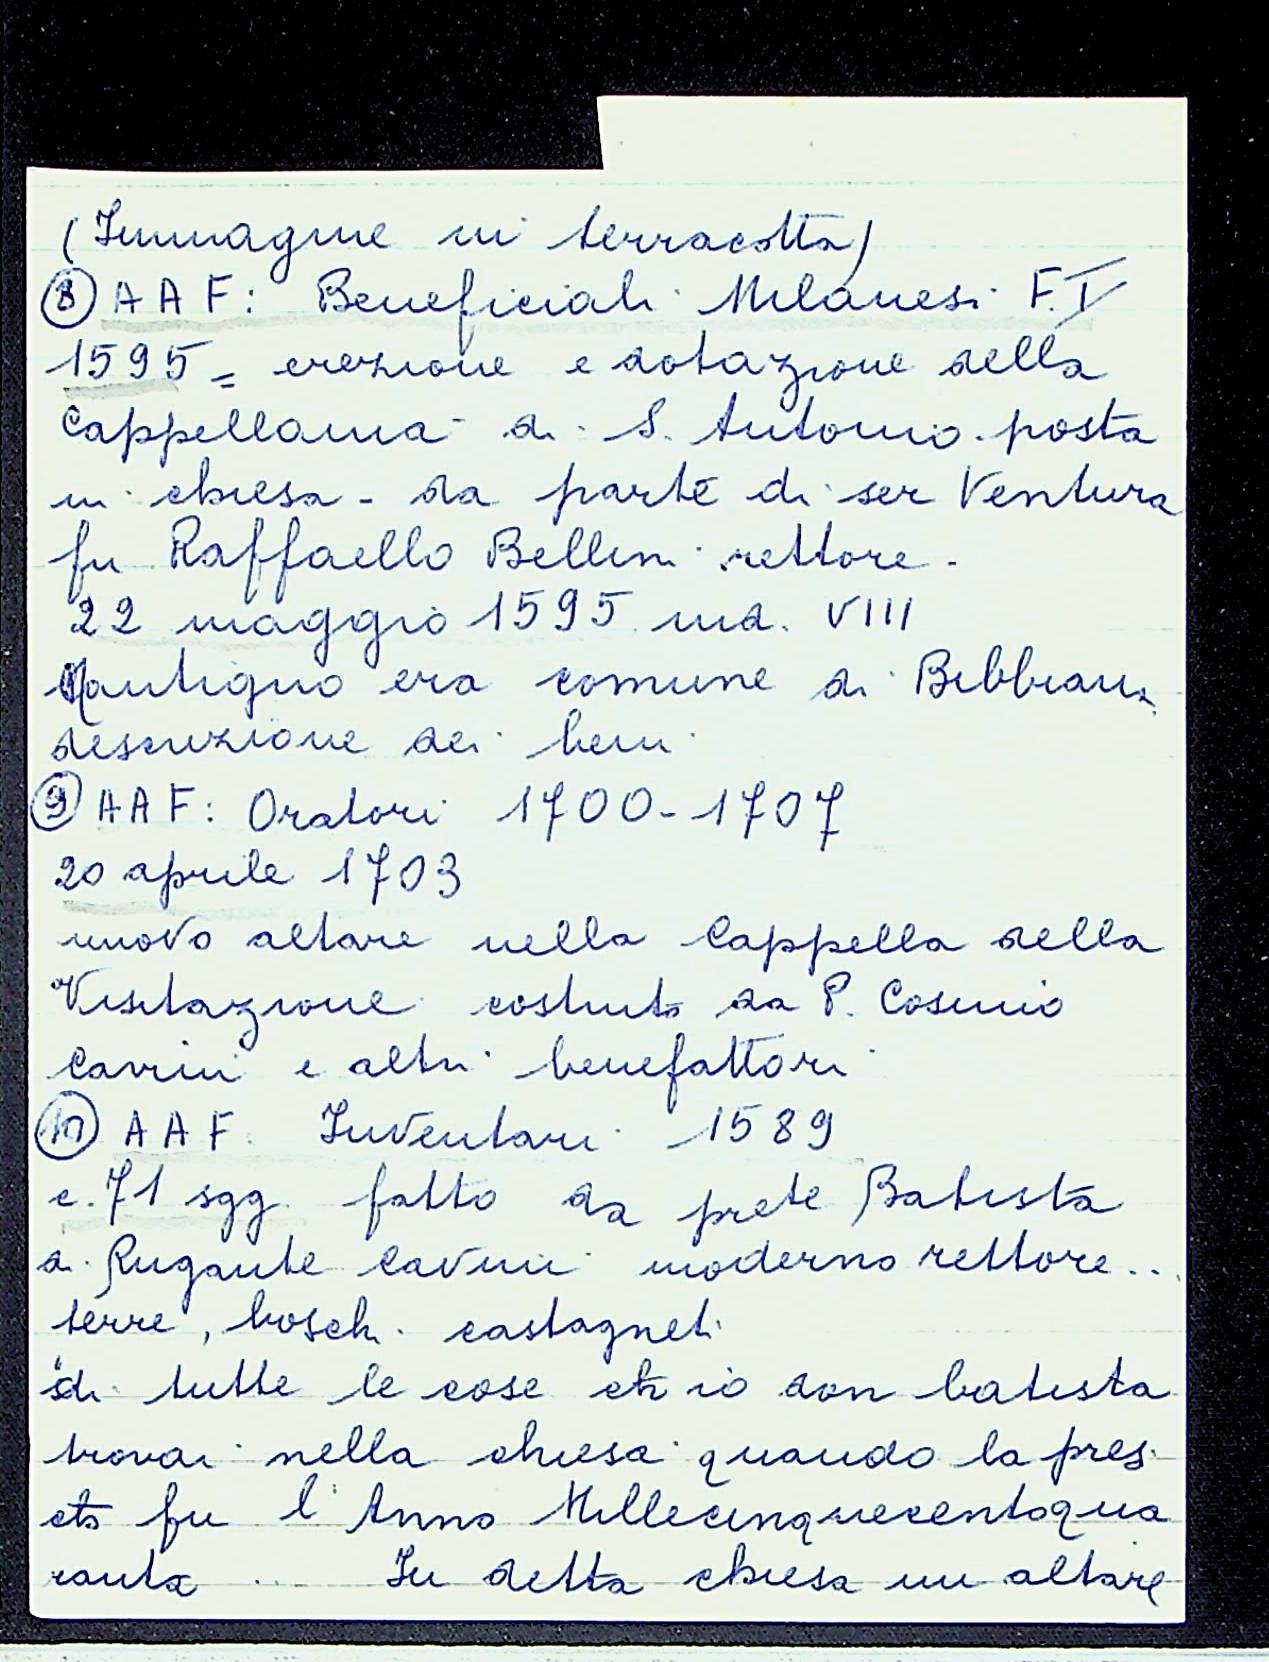 (Immagine in terracotta)
⑧ AAF: Beneficiali Milanesi F. V
1595 = erezione e dotazione della
Cappellania di S. Antonio posta
in chiesa - da parte di ser Ventura
fu Raffaello Bellini rettore -
22 maggio 1595 ind. VIII
Mantigno era comune di Bibbiana
descrizione dei beni
⑨ AAF: Oratori 1700-1707
20 aprile 1703
nuovo altare nella Cappella della
Visitazione costruito da P. Cosimo
Cavini e altri benefattori
⑩ AAF. Inventari 1589
c. 71 sgg. fatto da prete Batista
di Rugante Cavini moderno rettore...
terre, boschi castagneti
di tutte le cose ch io don batista
trovai nella chiesa quando la pres
fu l'Anno Millecinquecentoqua
ranta ... In detta chiesa un altare